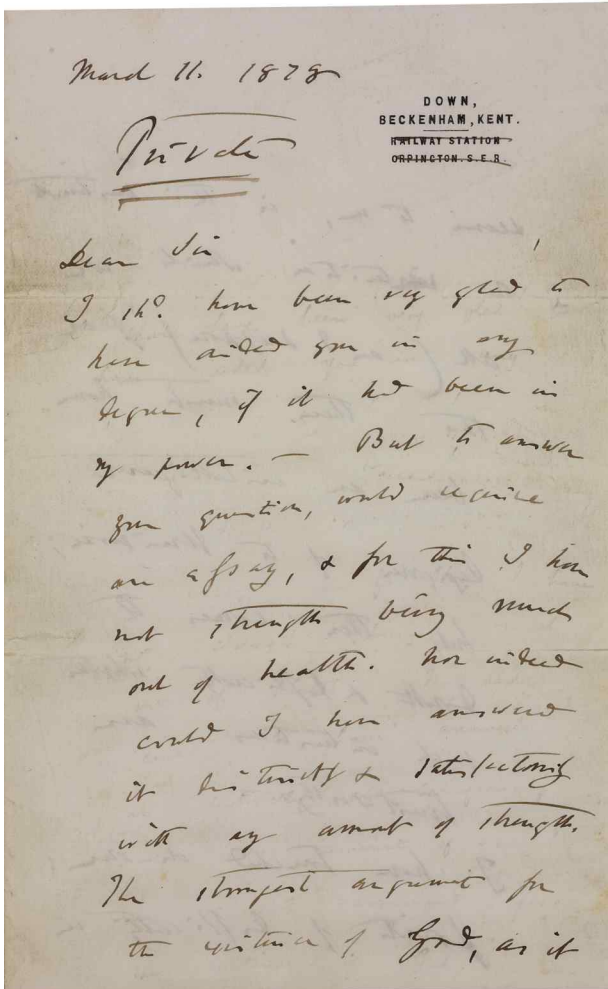 March 11. 1878
DOWN,
BECKENHAM, KENT.
RAILWAY STATION
ORPINGTON. S.E.R.
Private
Dear Sir
I shd. have been very glad to
have aided you in any
degree, if it had been in
my power. — But to answer
your question, would require
an essay, & for this I have
not strength being much
out of health. Nor indeed
could I have answered
it distinctly & satisfactorily
with any amount of strength.
The strongest argument for
the existence of God, as it